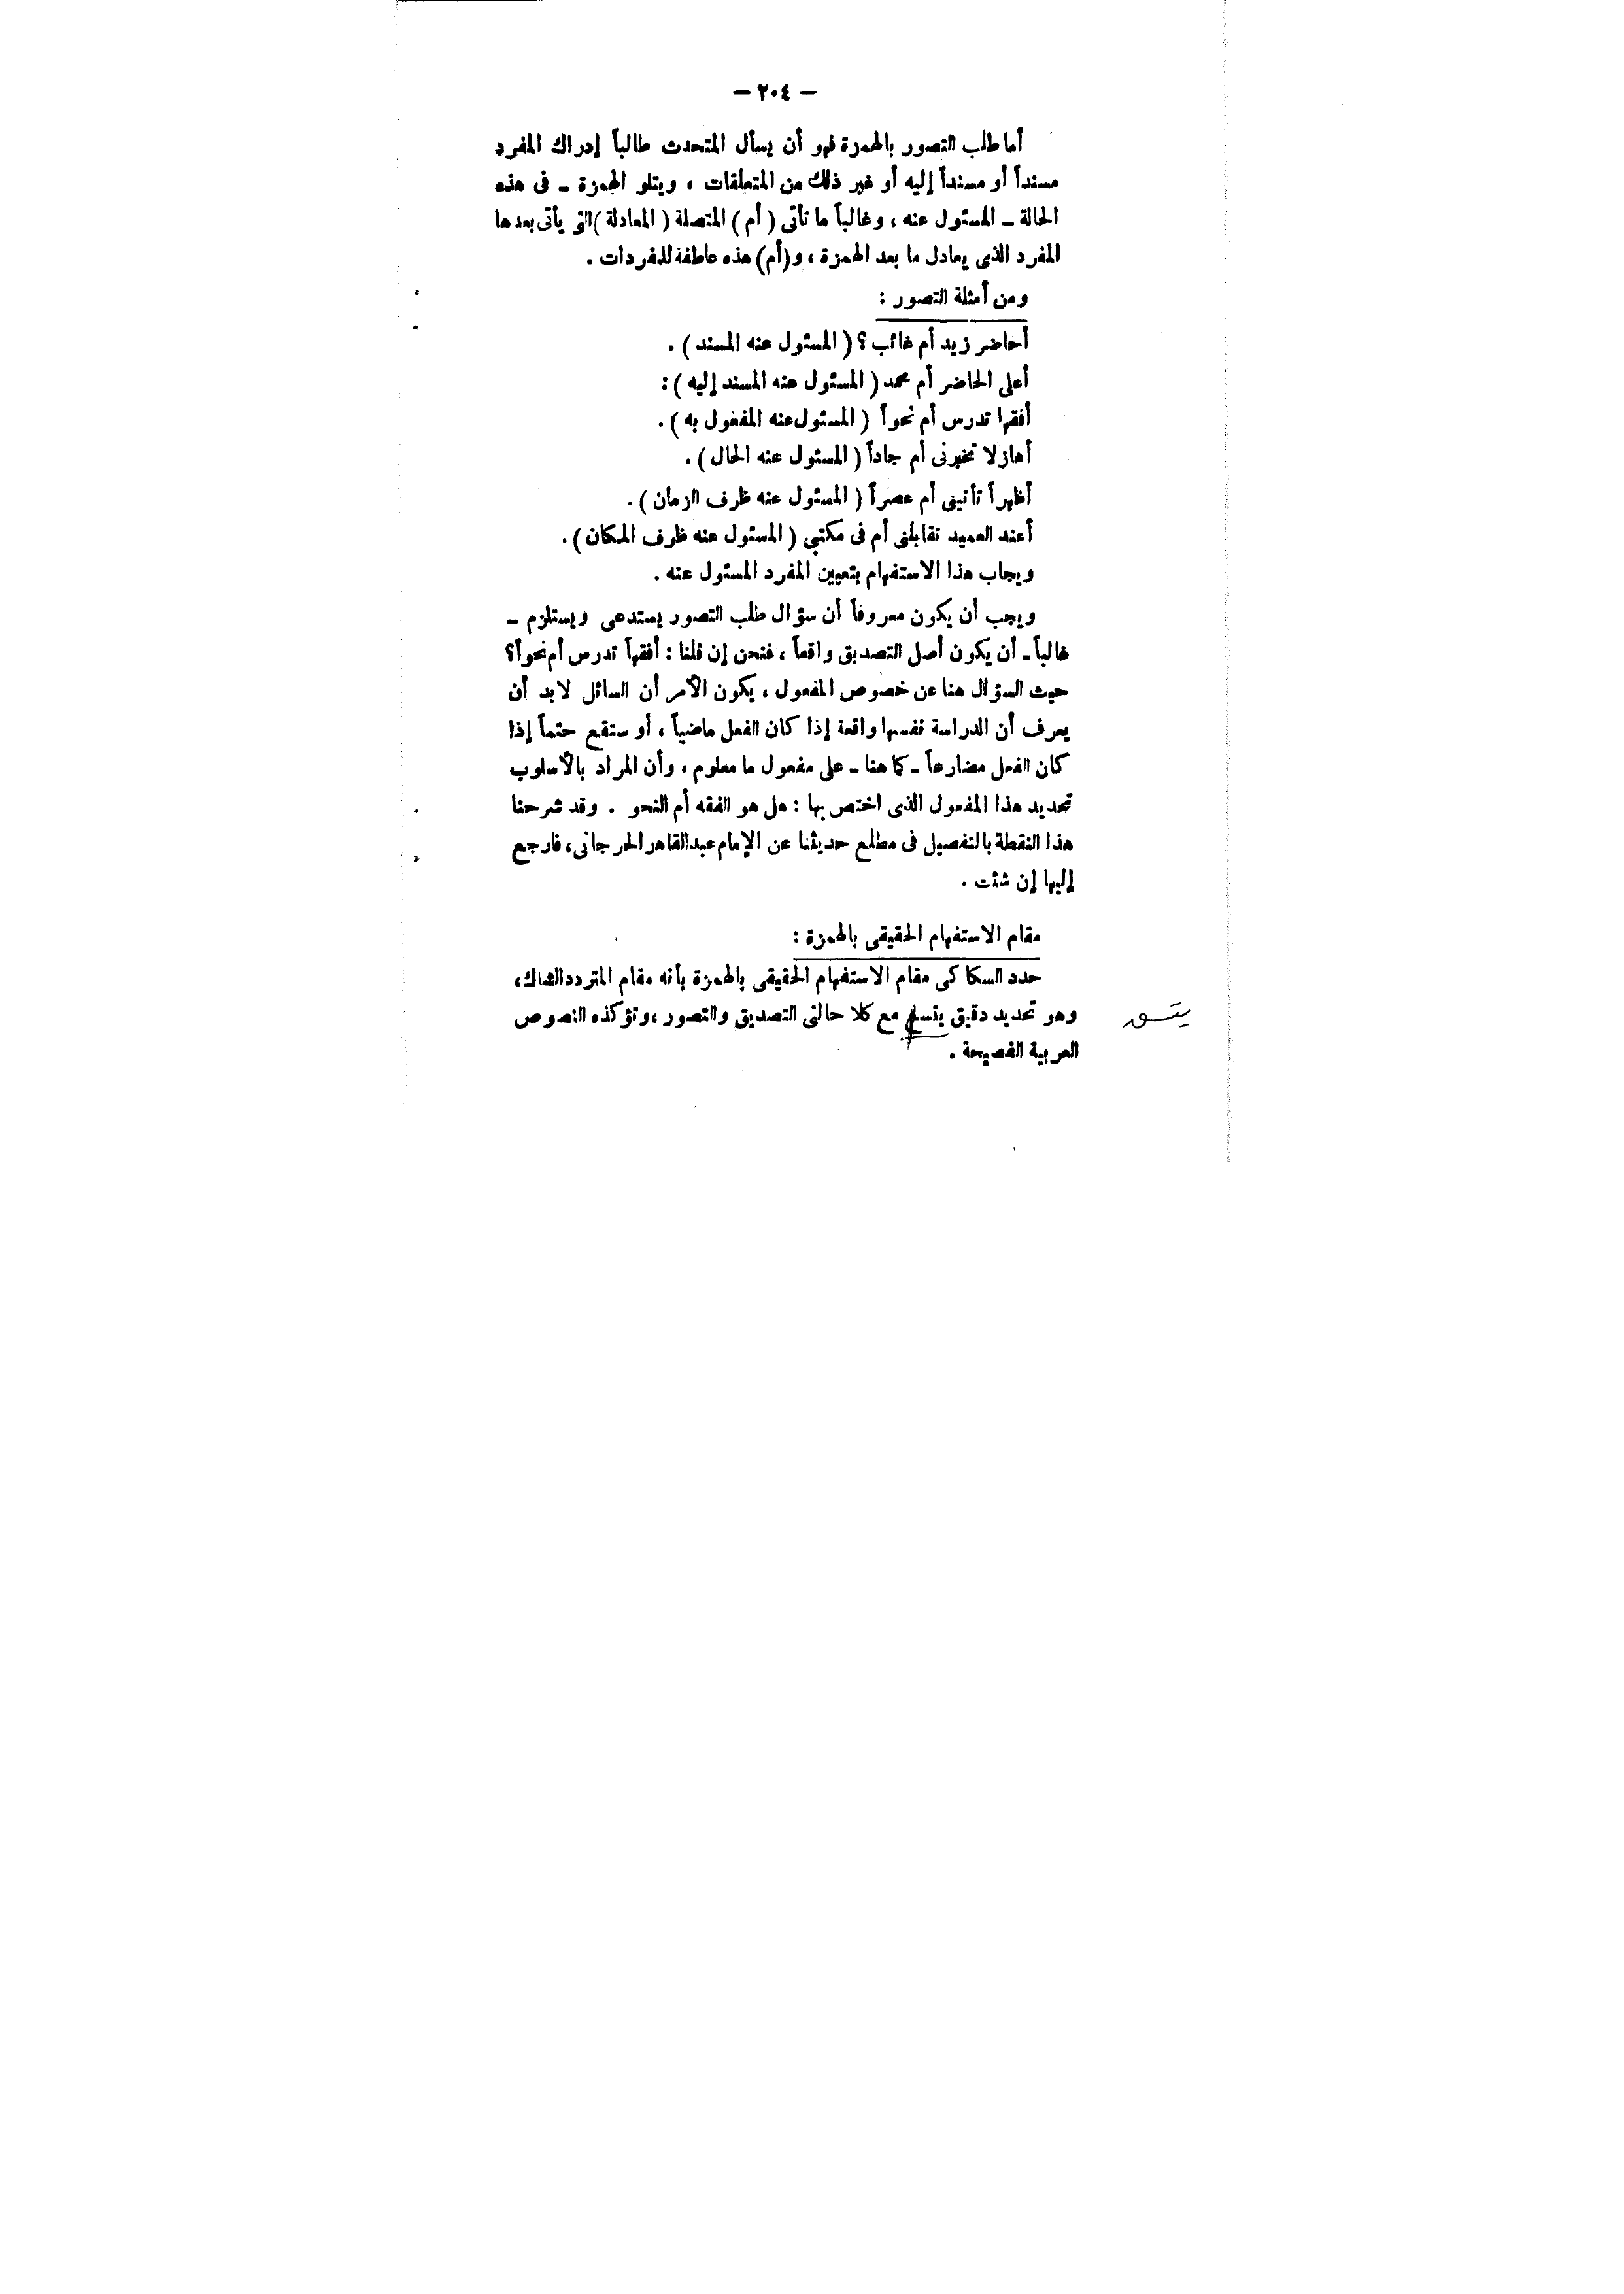 — ٢٠٤ —
أما طلب التصور بالهمزة فهو أن يسأل المتحدث طالباً إدراك المفرد
مسنداً أو مسنداً إليه أو غير ذلك من المتعلقات ، ويتلو الهمزة ــ فى هذه
الحالة ــ المسئول عنه ، وغالباً ما تأتى ( أم ) المتصلة ( المعادلة ) التى يأتى بعدها
المفرد الذى يعادل ما بعد الهمزة ، و(أم) هذه عاطفة للمفردات .
ومن أمثلة التصور :
أحاضر زيد أم غائب ؟ ( المسئول عنه المسند ) .
أعلى الحاضر أم محمد ( المسئول عنه المسند إليه ) :
أفقها تدرس أم نحواً ( المسئول عنه المفعول به ) .
أهازلا تخبرنى أم جاداً ( المسئول عنه الحال ) .
أظهراً تأتينى أم عصراً ( المسئول عنه ظرف الزمان ) .
أعند العميد تقابلنى أم فى مكتبى ( المسئول عنه ظرف المكان ) .
ويجاب هذا الاستفهام بتعيين المفرد المسئول عنه .
ويجب أن يكون معروفاً أن سؤال طلب التصور يستدعى ويستلزم ــ
غالباً ــ أن يكون أصل التصديق واقعاً ، فنحن إن قلنا : أفقهاً تدرس أم نحواً؟
حيث السؤال هنا عن خصوص المفعول ، يكون الأمر أن السائل لابد أن
يعرف أن الدراسة نفسها واقعة إذا كان الفعل ماضياً ، أو ستقع حتماً إذا
كان الفعل مضارعاً ــ كما هنا ــ على مفعول ما معلوم ، وأن المراد بالأسلوب
تحديد هذا المفعول الذى اختص بها : هل هو الفقه أم النحو . وقد شرحنا
هذا النقطة بالتفصيل فى مطلع حديثنا عن الإمام عبد القاهر الجرجانى ، فارجع
إليها إن شئت .
مقام الاستفهام الحقيقى بالهمزة :
حدد السكاكى مقام الاستفهام الحقيقى بالهمزة بأنه مقام المتردد الشاك ،
وهو تحديد دقيق يتسلم مع كلا حالتى التصديق والتصور ، وتؤكده النصوص
العربية الفصيحة .